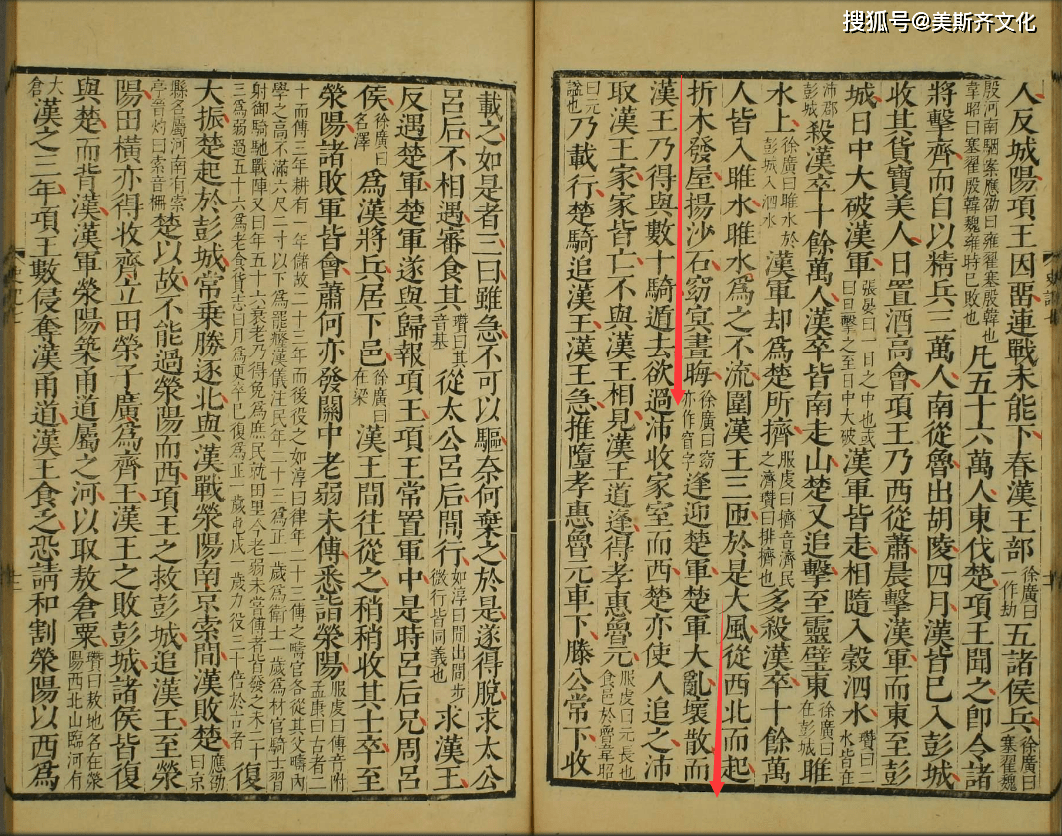 搜狐号@美斯齐文化
人反城陽項王因留連戰未能下春漢王部徐廣曰一作劫五諸侯兵徐廣曰塞翟魏
殷河南駰案應劭曰雍翟塞殷韓也韋昭曰塞翟殷韓魏雍時已敗也凡五十六萬人東伐楚項王聞之即令諸
將擊齊而自以精兵三萬人南從魯出胡陵四月漢皆已入彭城
收其貨寶美人日置酒高會項王乃西從蕭晨擊漢軍而東至彭
城日中大破漢軍張晏曰一日之中也或曰旦擊之至日中大破漢軍皆走相隨入穀泗水瓚曰二水皆在
沛郡彭城殺漢卒十餘萬人漢卒皆南走山楚又追擊至靈璧東徐廣曰在彭城睢
水上徐廣曰睢水於彭城入泗水漢軍却爲楚所擠服虔曰擠音濟民之濟瓚曰排擠也多殺漢卒十餘萬
人皆入睢水睢水爲之不流圍漢王三匝於是大風從西北而起
折木發屋揚沙石窈冥晝晦徐廣曰窈亦作窅字逢迎楚軍楚軍大亂壞散而
漢王乃得與數十騎遁去欲過沛收家室而西楚亦使人追之沛
取漢王家家皆亡不與漢王相見漢王道逢得孝惠魯元服虔曰元長也食邑於魯韋昭
曰元謚也乃載行楚騎追漢王漢王急推墮孝惠魯元車下滕公常下收
載之如是者三曰雖急不可以驅奈何棄之於是遂得脫求太公
呂后不相遇審食其瓚曰其音基從太公呂后間行如淳曰間出間步微行皆同義也求漢王
反遇楚軍楚軍遂與歸報項王項王常置軍中是時呂后兄周呂
侯徐廣曰名澤爲漢將兵居下邑徐廣曰在梁漢王間往從之稍稍收其士卒至
滎陽諸敗軍皆會蕭何亦發關中老弱未傅悉詣滎陽服虔曰傅音附孟康曰古者二
十而傅三年耕有一年儲故二十三年而後役之如淳曰律年二十三傅之疇官各從其父疇內學之高不滿六尺二寸以下爲罷癃漢儀注民年二十三爲正一歲爲衛士一歲爲材官騎士習
射御騎馳戰陣又曰年五十六衰老乃得免爲庶民就田里今老弱未嘗傅者皆發之未二十三爲弱過五十六爲老食貨志曰月爲更卒已復爲正一歲屯戍一歲力役三十倍於古者復
大振楚起於彭城常乘勝逐北與漢戰滎陽南京索間漢敗楚應劭曰京
縣名屬河南有索亭晉灼曰索音柵楚以故不能過滎陽而西項王之救彭城追漢王至滎
陽田橫亦得收齊立田榮子廣爲齊王漢王之敗彭城諸侯皆復
與楚而背漢漢軍滎陽築甬道屬之河以取敖倉粟瓚曰敖地名在滎陽西北山臨河有
大倉漢之三年項王數侵奪漢甬道漢王食乏恐請和割滎陽以西爲